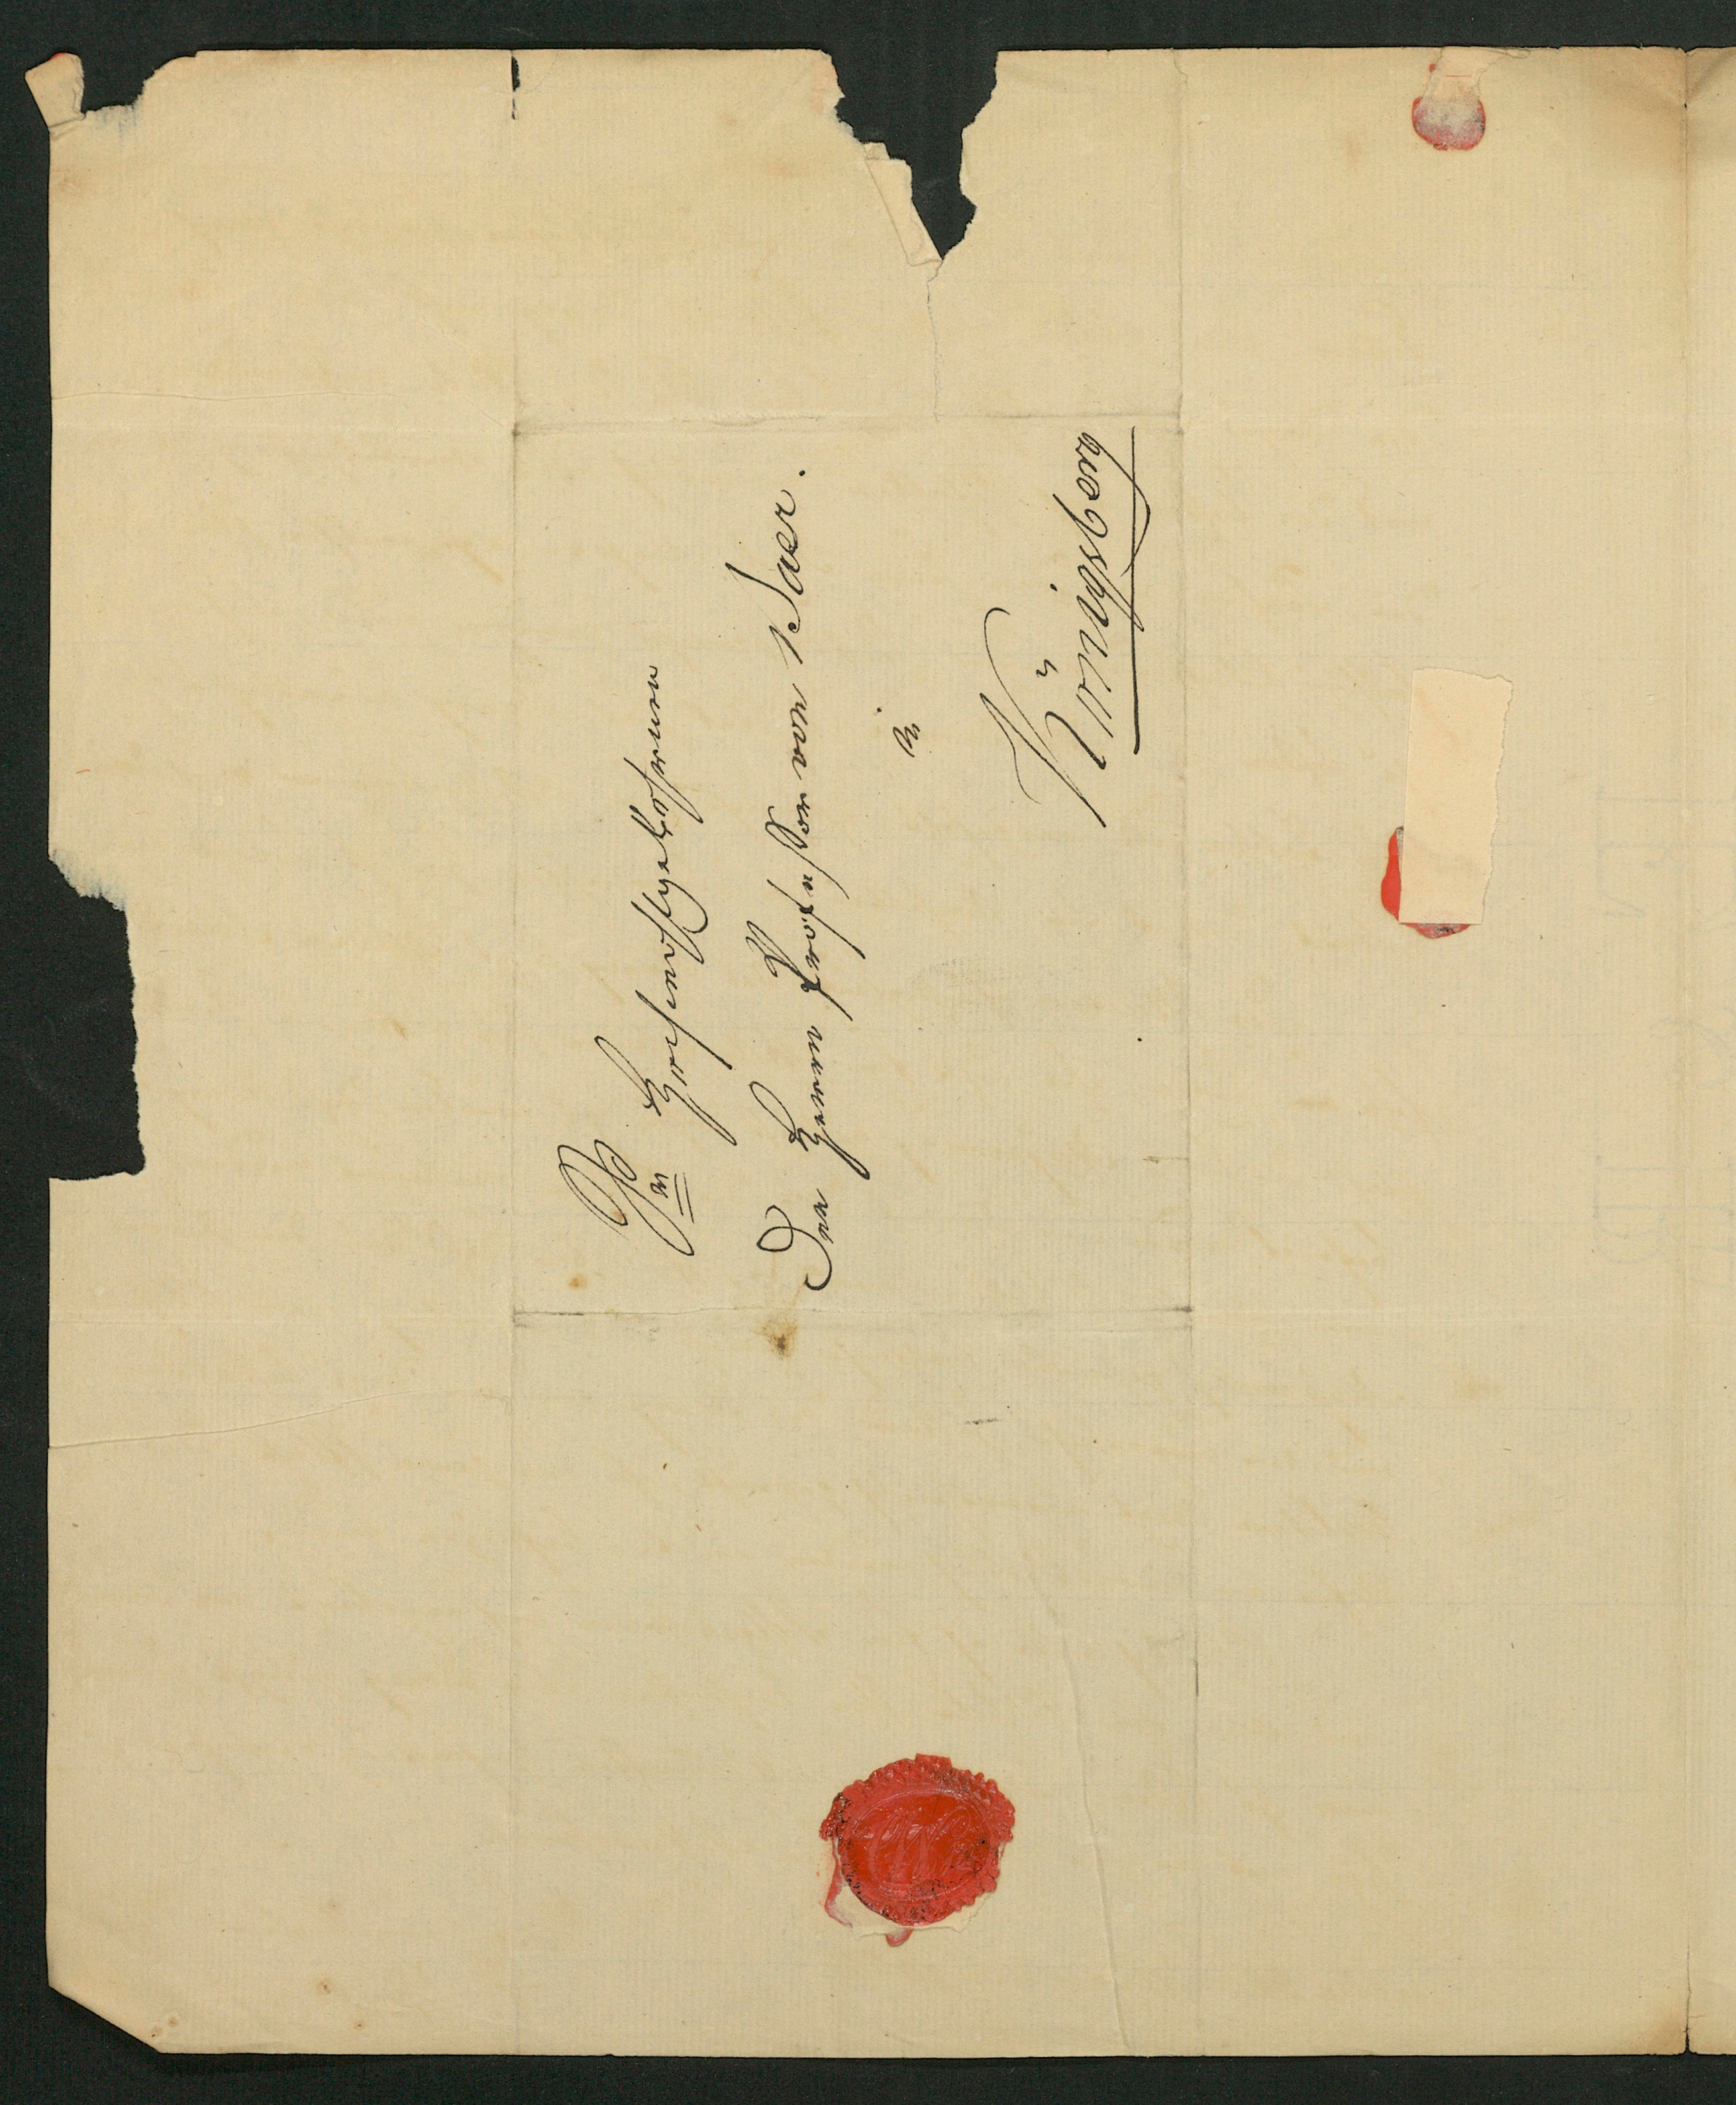 Sr Hochwohlgebohren
Dem Herrn Professor von Baer.
in
Königsberg